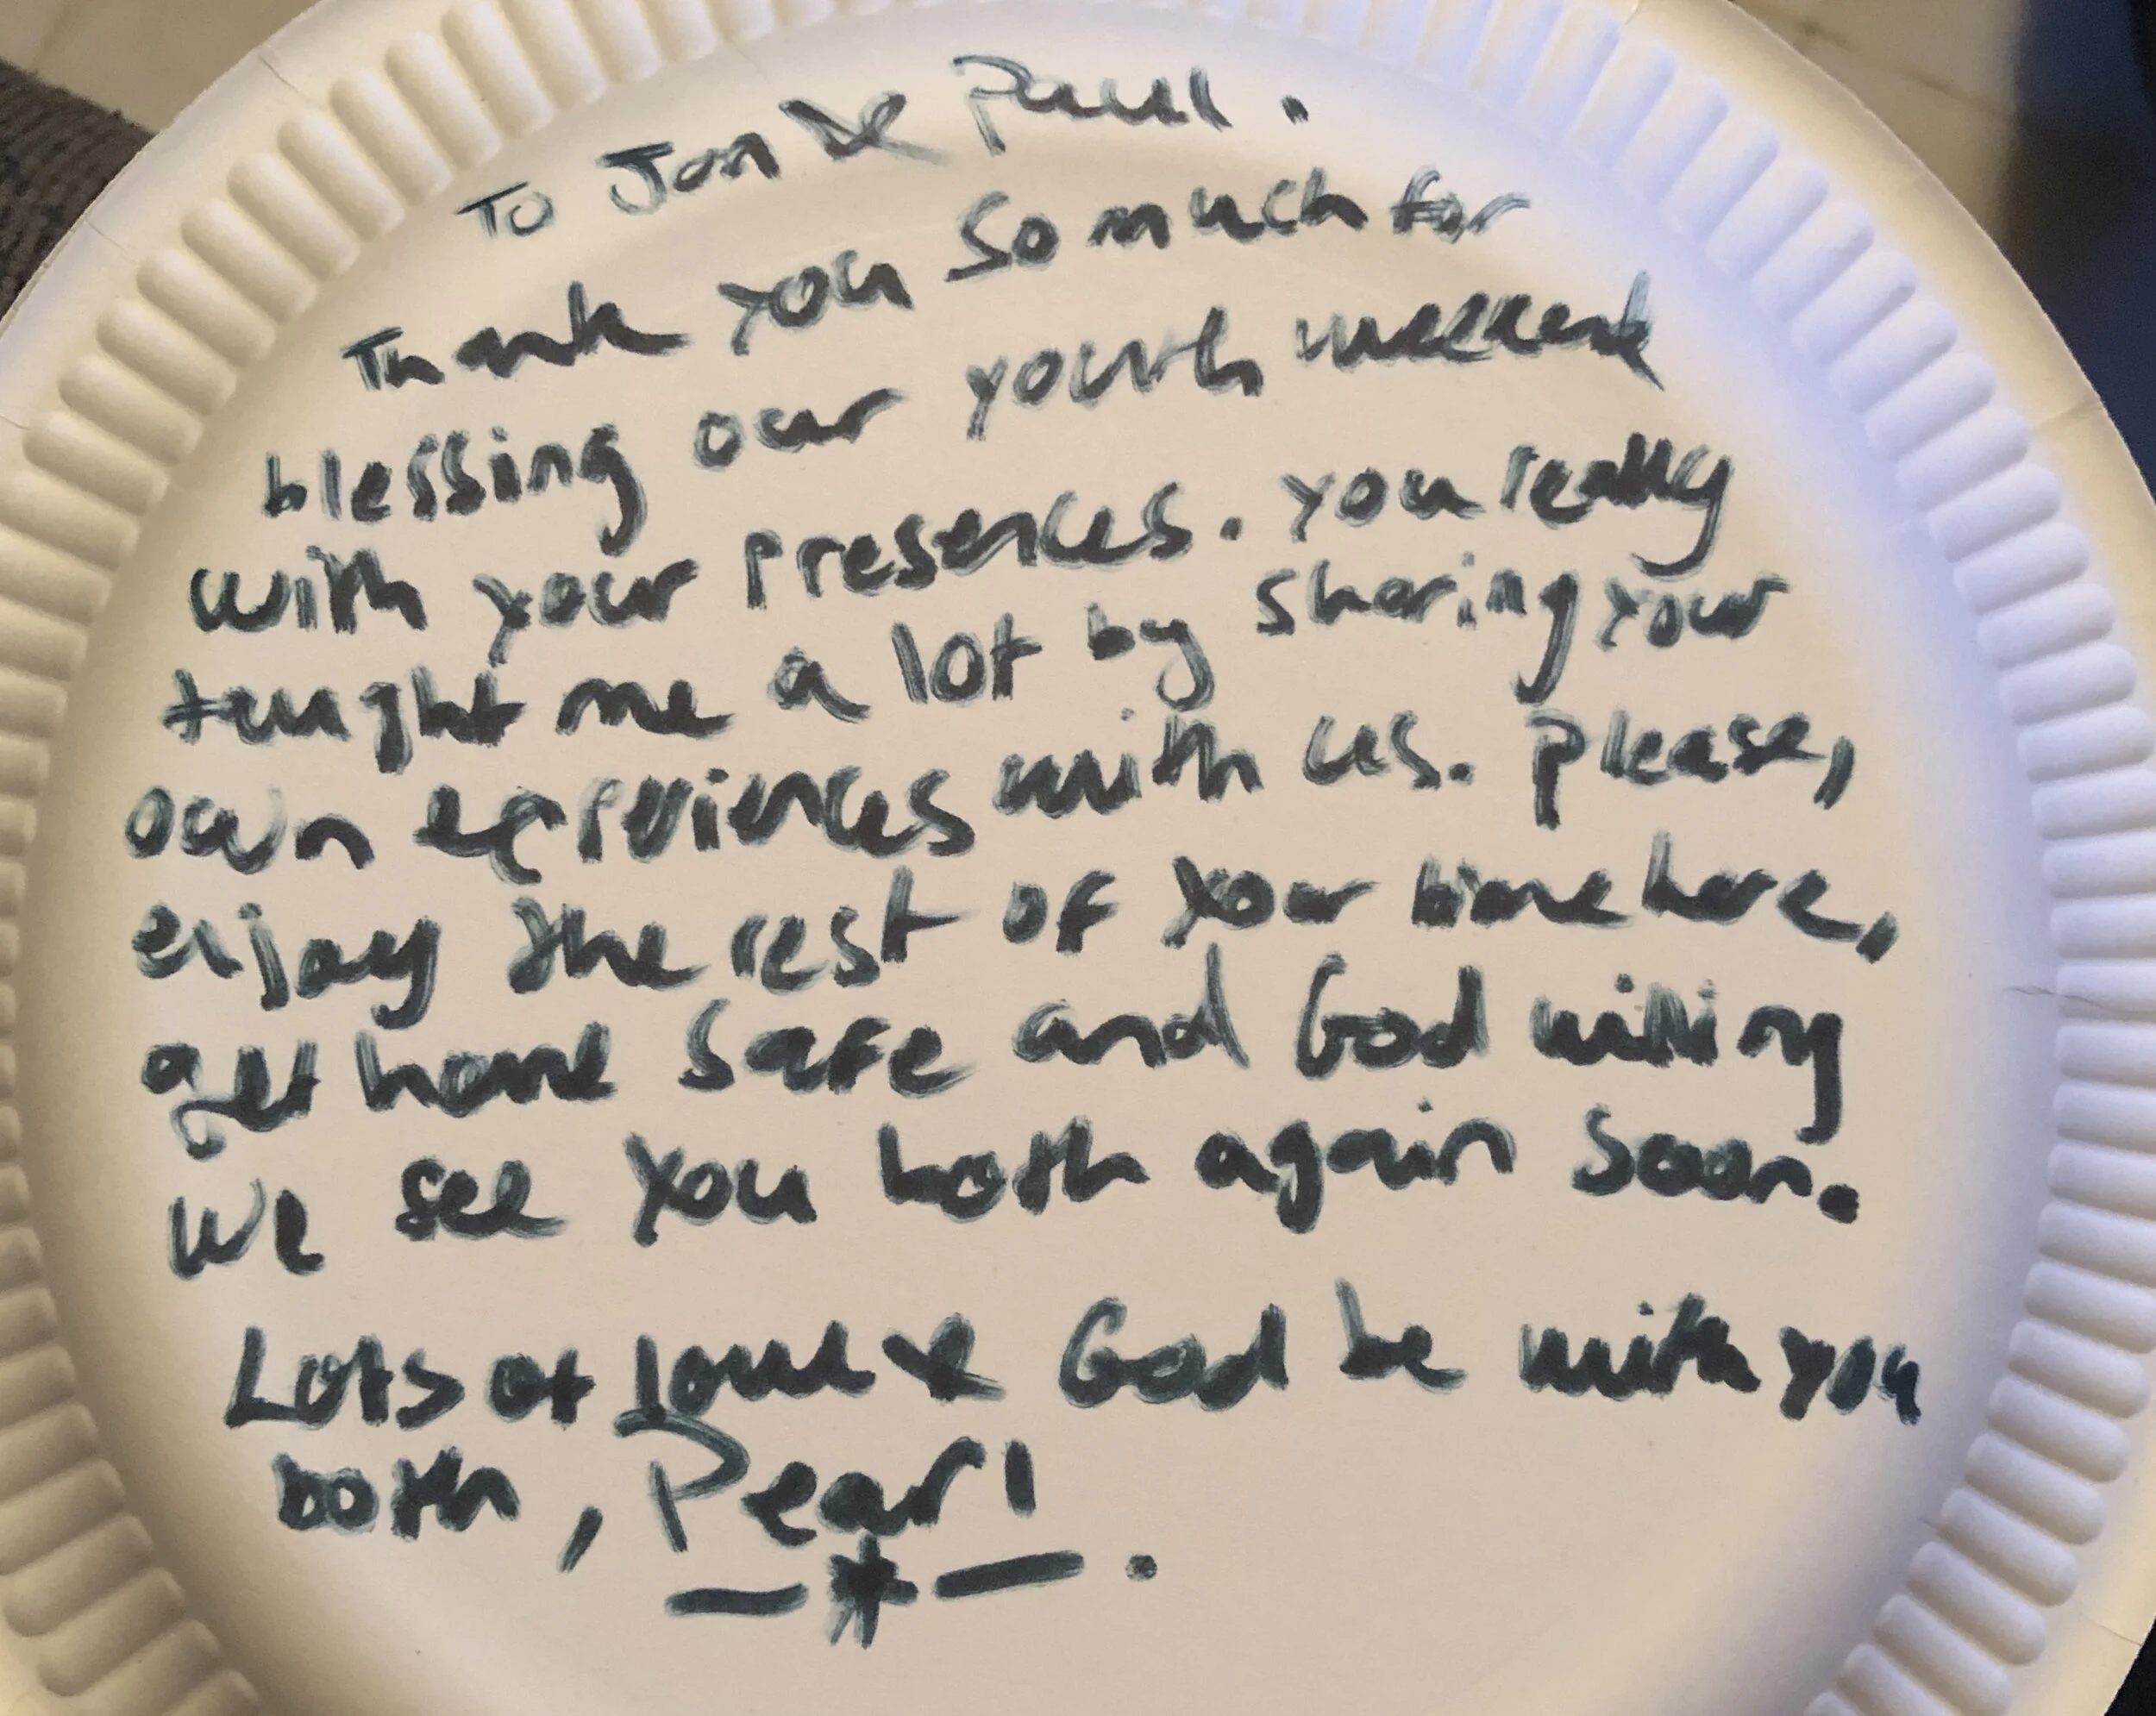 To Jon & Paul.
Thank you so much for
blessing our youth weekend
with your presences. you really
taught me a lot by sharing your
own epriviences with us. please,
enjoy the rest of your time here,
get home safe and God willing
we see you both again soon.
Lots of love & God be with you
both, Pearl